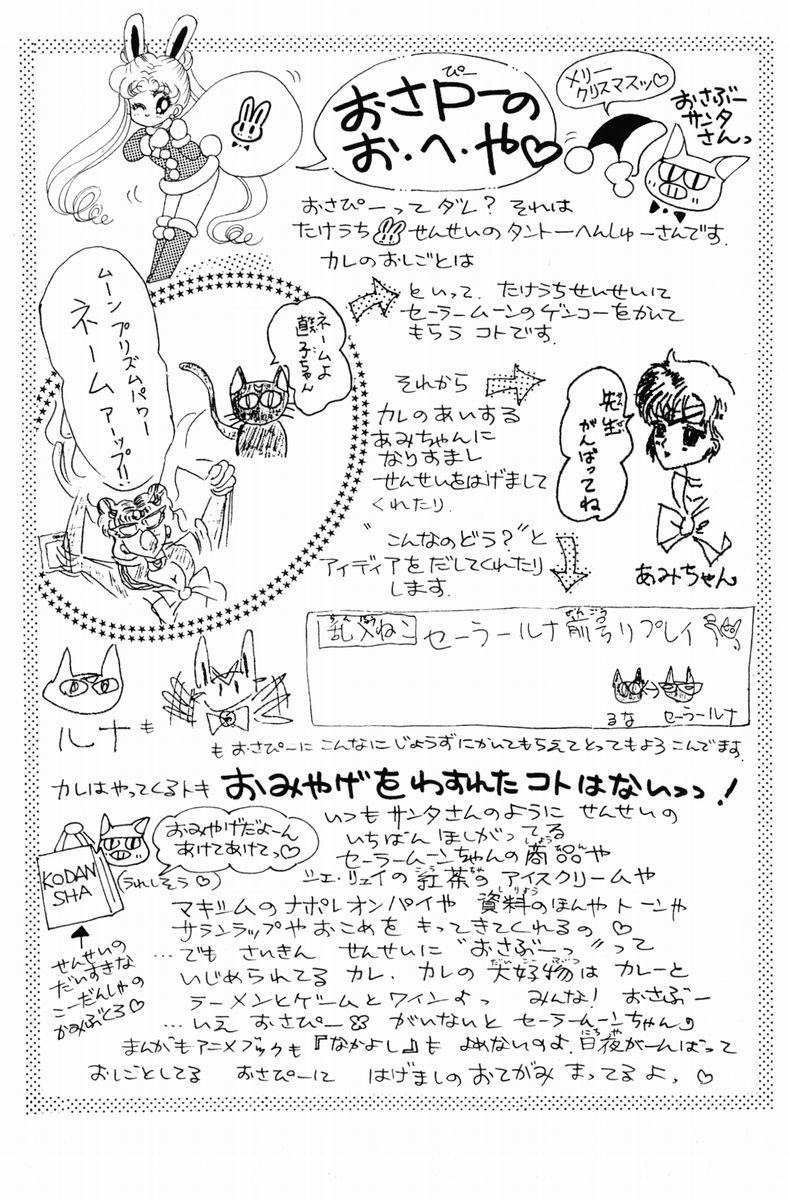 おさPーの
ぴー
お・へ・や♡
メリー
クリスマスッ♡
おさぶー
サンタ
さんっ
おさぴーってダレ？それは
たけうち せんせいのタントーへんしゅーさんです.
カレのおしごとは
ムーンプリズムパワー
ネーム
アーップ!!
ネームよ
直子ちゃん
といって. たけうちせんせいに
セーラームーンのゲンコーをかいて
もらうコトです.
それから
カレのあいする
あみちゃんに
なりすまし
せんせいをはげまして
くれたり.
先生
がんばってね
あみちゃん
"こんなのどう？"と
アイディアをだしてくれたり
します.
乱入ねこ セーラールナ前号リプレイ
るな
セーラールナ
ルナも
もおさぴーにこんなにじょうずにかいてもらえてとってもよろこんでます.
カレはやってくるトキ おみやげをわすれたコトはないっっ！
おみやげだよーん
あけてあけてっ♡
(うれしそう♡)
KODAN
SHA
せんせいの
だいすきな
こーだんしゃの
かみぶくろ♡
いつもサンタさんのように せんせいの
いちばん ほしがってる
セーラームーンちゃんの商品や
ジェ・リュイの紅茶のアイスクリームや
マキシムのナポレオンパイや 資料のほんやトーンや
サランラップやおこめを もってきてくれるの♡
…でも さいきん せんせいに"おさぶーっ"って
いじめられてるカレ. カレの大好物はカレーと
ラーメンとゲームとワインよっ みんな！ おさぶー
…いえ おさぴー がいないと セーラームーンちゃん♪
まんがもアニメブックも『なかよし』も よめないのよ. 日夜がーんばって
おしごとしてる おさぴーに はげましの おてがみ まってるよっ♡